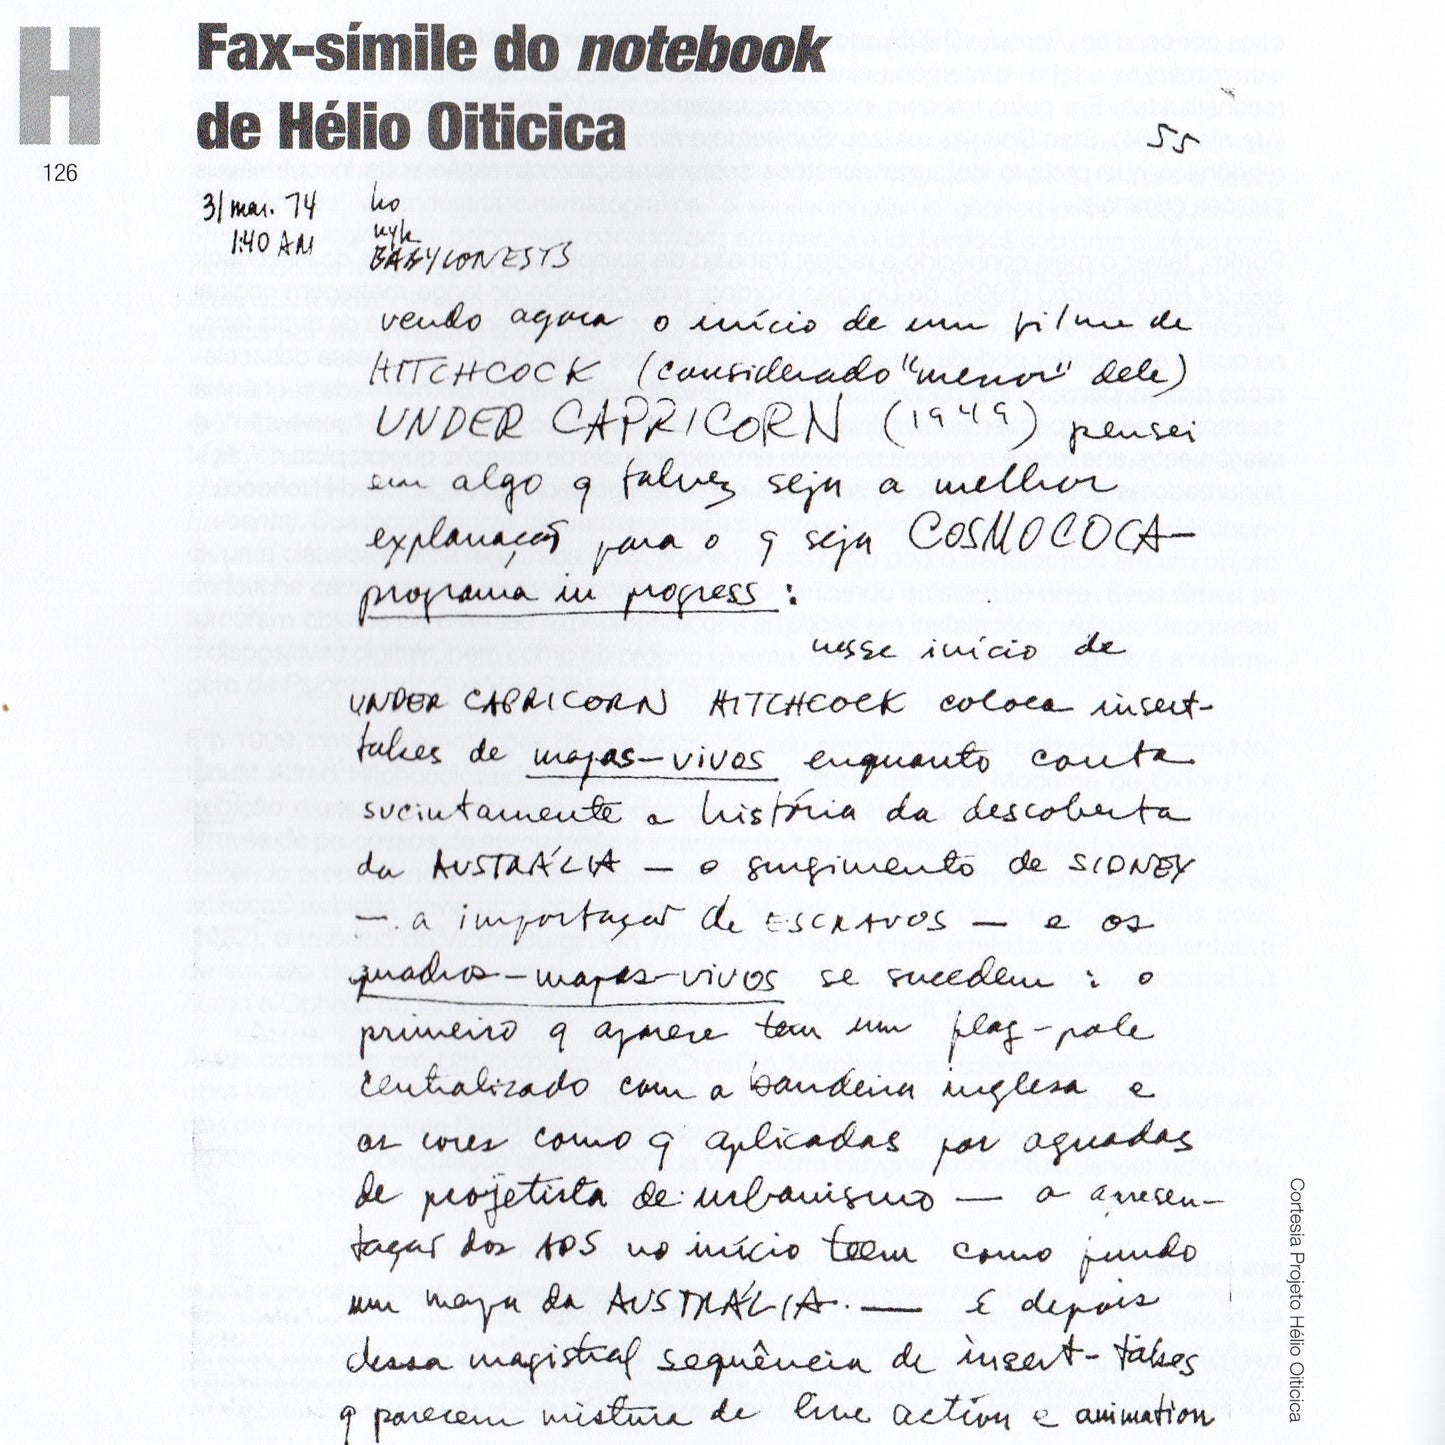 H
Fax-símile do notebook
de Hélio Oiticica
126
55
31 mar. 74
1:40 AM
ho
nyk
BABYLONESTS
vendo agora o início de um filme de
HITCHCOCK (considerado "menor" dele)
UNDER CAPRICORN (1949) pensei
em algo q talvez seja a melhor
explanação para o q seja COSMOCOCA—
programa in progress:
nesse início de
UNDER CAPRICORN HITCHCOCK coloca insert-
takes de mapas-vivos enquanto conta
sucintamente a história da descoberta
da AUSTRÁLIA — o surgimento de SIDNEY
— a importaçaõ de ESCRAVOS — e os
quadros-mapas-vivos se sucedem: o
primeiro q aparece tem um flag-pole
centralizado com a bandeira inglesa e
as cores como q aplicadas por aguadas
de projetista de urbanismo — a apresen-
taçaõ dos no início teem como fundo
um mapa da AUSTRÁLIA. — E depois
dessa magistral sequência de insert-takes
q parecem mistura de live action e animation
Cortesia Projeto Hélio Oiticica